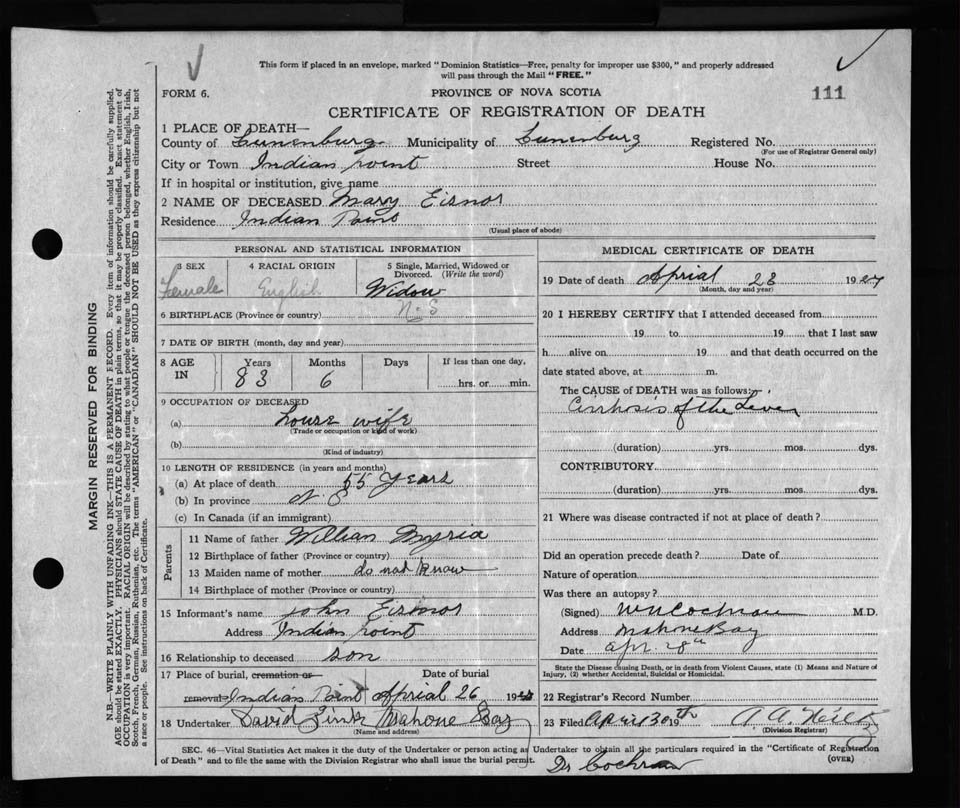 This form if placed in an envelope, marked "Dominion Statistics—Free, penalty for improper use $300," and properly addressed
will pass through the Mail "FREE."
FORM 6.
PROVINCE OF NOVA SCOTIA
111
CERTIFICATE OF REGISTRATION OF DEATH
1 PLACE OF DEATH—
County of Lunenburg Municipality of Lunenburg Registered No.
(For use of Registrar General only)
City or Town Indian point Street House No.
If in hospital or institution, give name
2 NAME OF DECEASED Mary Eisnor
Residence Indian Point
(Usual place of abode)
PERSONAL AND STATISTICAL INFORMATION
3 SEX 4 RACIAL ORIGIN 5 Single, Married, Widowed or
Divorced. (Write the word)
Female English Widow
6 BIRTHPLACE (Province or country) N.S
7 DATE OF BIRTH (month, day and year)
8 AGE IN Years Months Days If less than one day,
83 6 hrs. or min.
9 OCCUPATION OF DECEASED
(a) house wife
(Trade or occupation or kind of work)
(b)
(Kind of industry)
10 LENGTH OF RESIDENCE (in years and months)
(a) At place of death 55 years
(b) In province N S
(c) In Canada (if an immigrant)
Parents
11 Name of father William
12 Birthplace of father (Province or country)
13 Maiden name of mother do not know
14 Birthplace of mother (Province or country)
15 Informant's name John Eisnor
Address Indian point
16 Relationship to deceased son
17 Place of burial, cremation or Date of burial
removal Indian Point Aprial 26 19
18 Undertaker David Mahone Bay
(Name and address)
MEDICAL CERTIFICATE OF DEATH
19 Date of death Aprial 23 1927
(Month, day and year)
20 I HEREBY CERTIFY that I attended deceased from
19 to 19 that I last saw
h alive on 19 and that death occurred on the
date stated above, at m.
The CAUSE of DEATH was as follows:—
Cirrhosis of the Liver
(duration) yrs. mos. dys.
CONTRIBUTORY
(duration) yrs. mos. dys.
21 Where was disease contracted if not at place of death?
Did an operation precede death? Date of
Nature of operation
Was there an autopsy?
(Signed) W N Cochran M.D.
Address Mahone Bay
Date Apr. 28th
State the Disease causing Death, or in death from Violent Causes, state (1) Means and Nature of
Injury, (2) whether Accidental, Suicidal or Homicidal.
22 Registrar's Record Number
23 Filed April 30th 19 A. A.
(Division Registrar)
SEC. 46—Vital Statistics Act makes it the duty of the Undertaker or person acting as Undertaker to obtain all the particulars required in the "Certificate of Registration
of Death" and to file the same with the Division Registrar who shall issue the burial permit.
(OVER)
Dr Cochran
MARGIN RESERVED FOR BINDING
N.B.—WRITE PLAINLY WITH UNFADING INK—THIS IS A PERMANENT RECORD. Every item of information should be carefully supplied.
AGE should be stated EXACTLY. PHYSICIANS should STATE CAUSE OF DEATH in plain terms, so that it may be properly classified. Exact statement of
OCCUPATION is very important. RACIAL ORIGIN will be described by stating to what people or tongue the deceased person belonged, whether English, Irish,
Scotch, French, German, Russian, Ruthenian, etc. The terms "AMERICAN" or "CANADIAN" SHOULD NOT BE USED as they express citizenship but not
a race or people. See instructions on back of Certificate.